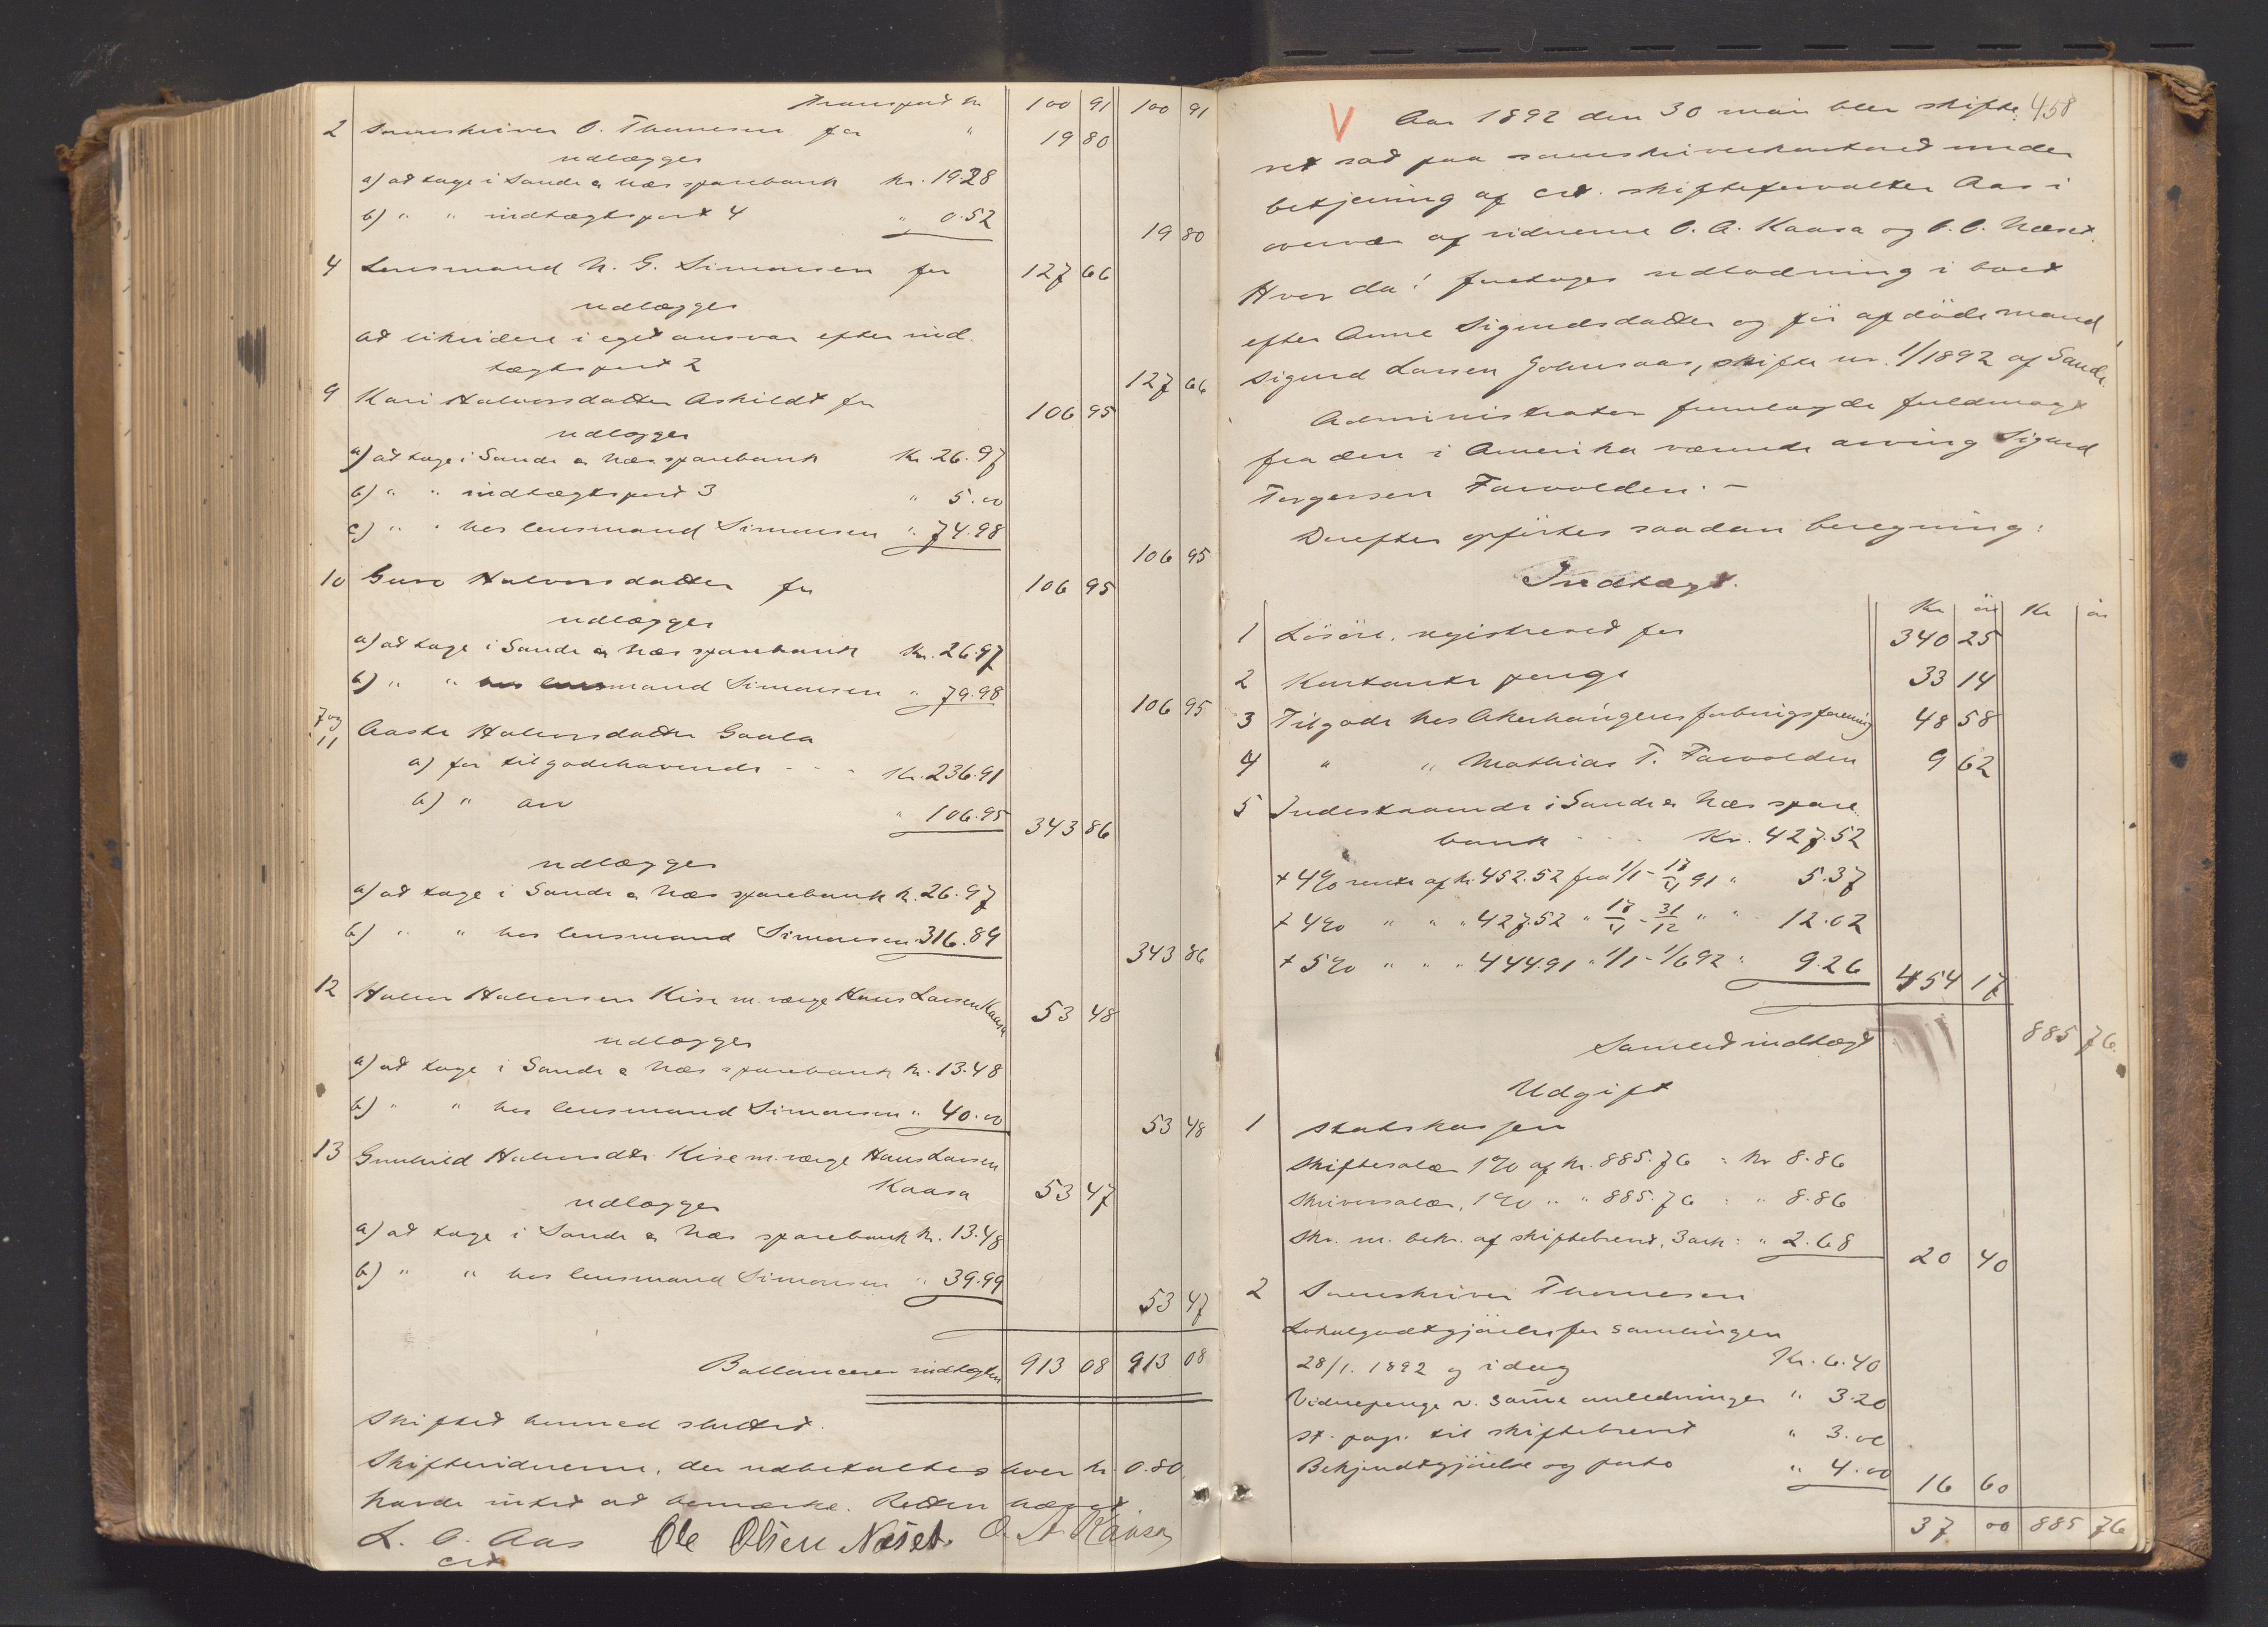 Transport kr. 100 91 100 91
2 Sorenskriver O. Thomesen for " 19 80
udlægges
a) at tage i Sande & Næs sparebank kr. 19.28
b) " " indtægtspost 4 " 0.52
19 80
4 Lensmand N. G. Simonsen for 127 66
udlægges
at likvidere i eget ansvar efter ind-
tægtspost 2
127 66
9 Kari Halvorsdatter Askildt for 106 95
udlægges
a) at tage i Sande & Næs sparebank Kr. 26.97
b) " " indtægtspost 3 " 5.00
c) " " hos lensmand Simonsen " 74.98
106 95
10 Guro Halvorsdatter for 106 95
udlægges
a) at tage i Sande & Næs sparebank Kr. 26.97
b) " " hos lensmand Simonsen " 79.98
106 95
7 og
11 Aaste Halvorsdatter Gaala
a) for tilgodehavende - - - Kr. 236.91
b) " arv " 106.95 343 86
udlægges
a) at tage i Sande & Næs sparebank k. 26.97
b) " " hos lensmand Simonsen 316.89
343 86
12 Halvor Halvorsen Kise m. værge Hans Larsen Kaasa 53 48
udlægges
a) at tage i Sande & Næs sparebank kr. 13.48
b) " " hos lensmand Simonsen " 40.00
53 48
13 Gunhild Halvorsdtr Kise m. værge Hans Larsen
Kaasa 53 47
udlægges
a) at tage i Sande & Næs sparebank kr. 13.48
b) " " hos lensmand Simonsen " 39.99
53 47
Ballancerer indtægten 913 08 913 08
Skiftet hermed sluttet.
Skiftevidnerne, der udbetaltes hver kr. 0.80,
havde intet at bemærke. Retten hævet
L. O. Aas Ole Olsen Næset. O. A. Kaasa
cst
458
V Aar 1892 den 30 mai blev skifte-
ret sat paa sorenskriverkontoret under
betjening af cst. skifteforvalter Aas i
overvær af vidnerne O. A. Kaasa og O. O. Næset.
Hvor da: foretoges udlodning i boet
efter Anne Sigurdsdatter og før afdøde mand,
Sigurd Larsen Johnsaas, skifte nr. 1/1892 af Sande.
Administrator fremlagde fuldmagt
fra den i Amerika værende arving Sigurd
Torgersen Farvolden. -
Derefter opførtes saadan beregning:
Indtægt.
Kr øre Kr øre
1 Løsøre, registreret for 340 25
2 Kontante penge 33 14
3 Tilgode hos Akerhaugens forbrugsforening 48 58
4 " " Mathias T. Farvolden 9 62
5 Indestaaende i Sande & Næs spare-
bank - - - Kr. 427.52
+ 4% rente af kr. 452.52 fra 1/1 - 18/4 91 " 5.37
+ 4% " " " 427.52 " 18/4 - 31/12 " " 12.02
+ 5% " " " 444.91 " 1/1 - 1/6 92 " 9.26 454 17
Samlet indtægt 885 76
Udgift
1 Statskassen
Skiftesalær 1% af kr. 885.76 = kr 8.86
Skriversalær, 1% " " 885.76 = " 8.86
Skr. m. bekr. af skiftebrevet, 3 ark: " 2.68 20 40
2 Sorenskriver Thomesen
Lokalgodtgjørelse for samlingen
28/1. 1892 og idag Kr. 6.40
Vidnepenge v. samme anledninger " 3.20
st. pap. til skiftebrevet " 3.00
Bekjendtgjørelse og porto " 4.00 16 60
37 00 885 76